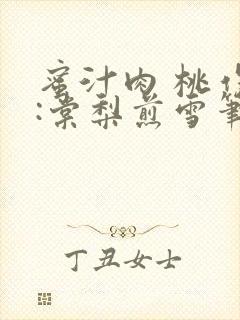 蜜汁肉桃
:棠梨煎雪筆
丁丑女士